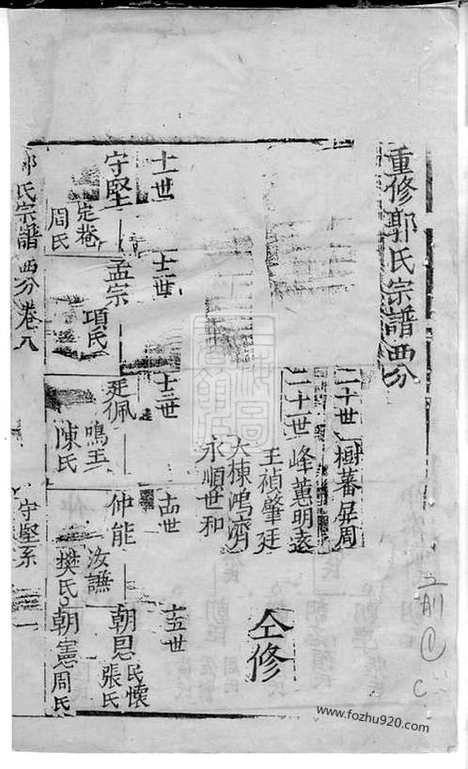 重修郭氏宗譜西分
二十世 樹蕃屏周
二十一世 峰蕙明遠
王禎肇廷
大棟鴻濟
永順世和
仝修
十一世 十二世 十三世 十四世 十五世
守堅 孟宗 廷佩 仲能 朝恩 民懷 張氏
定菴 周氏 項氏 鳴玉 陳氏 汝謙 樊氏 朝憲 周氏
郭氏宗譜 西分卷八 守堅系
www.fozhu920.com